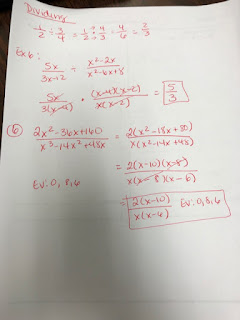 Dividing
1/2 ÷ 3/4 = 1/2 · 4/3 = 4/6 = 2/3
Ex 6:
5x/(3x-12) ÷ (x²-2x)/(x²-6x+8)
5x/3(x-4) · (x-4)(x-2)/x(x-2) = 5/3
⑥ (2x²-36x+160)/(x³-14x²+48x) = 2(x²-18x+80)/x(x²-14x+48)
= 2(x-10)(x-8)/x(x-8)(x-6)
EV: 0, 8, 6
= 2(x-10)/x(x-6) EV: 0, 8, 6